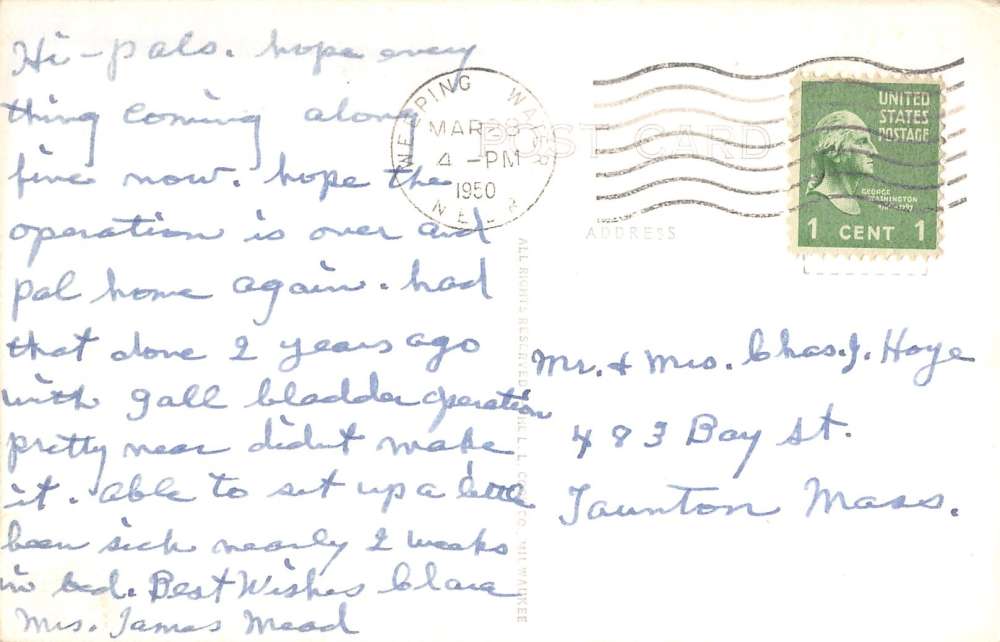 Hi-pals. hope every
thing coming along
fine now. hope the
operation is over and
pal home again. had
that done 2 years ago
with gall bladder operation
pretty near didnt make
it. able to set up a little
been sick nearly 2 weeks
in bed. Best Wishes Clara
Mrs. James Mead
WEEPING WATER
MAR
4 -PM
1950
NEBR
POST CARD
ADDRESS
UNITED
STATES
POSTAGE
GEORGE
WASHINGTON
1789-1797
1 CENT 1
ALL RIGHTS RESERVED THE L.L. COOK CO. MILWAUKEE
Mr. & Mrs. Chas. J. Hoye
483 Bay St.
Taunton Mass.